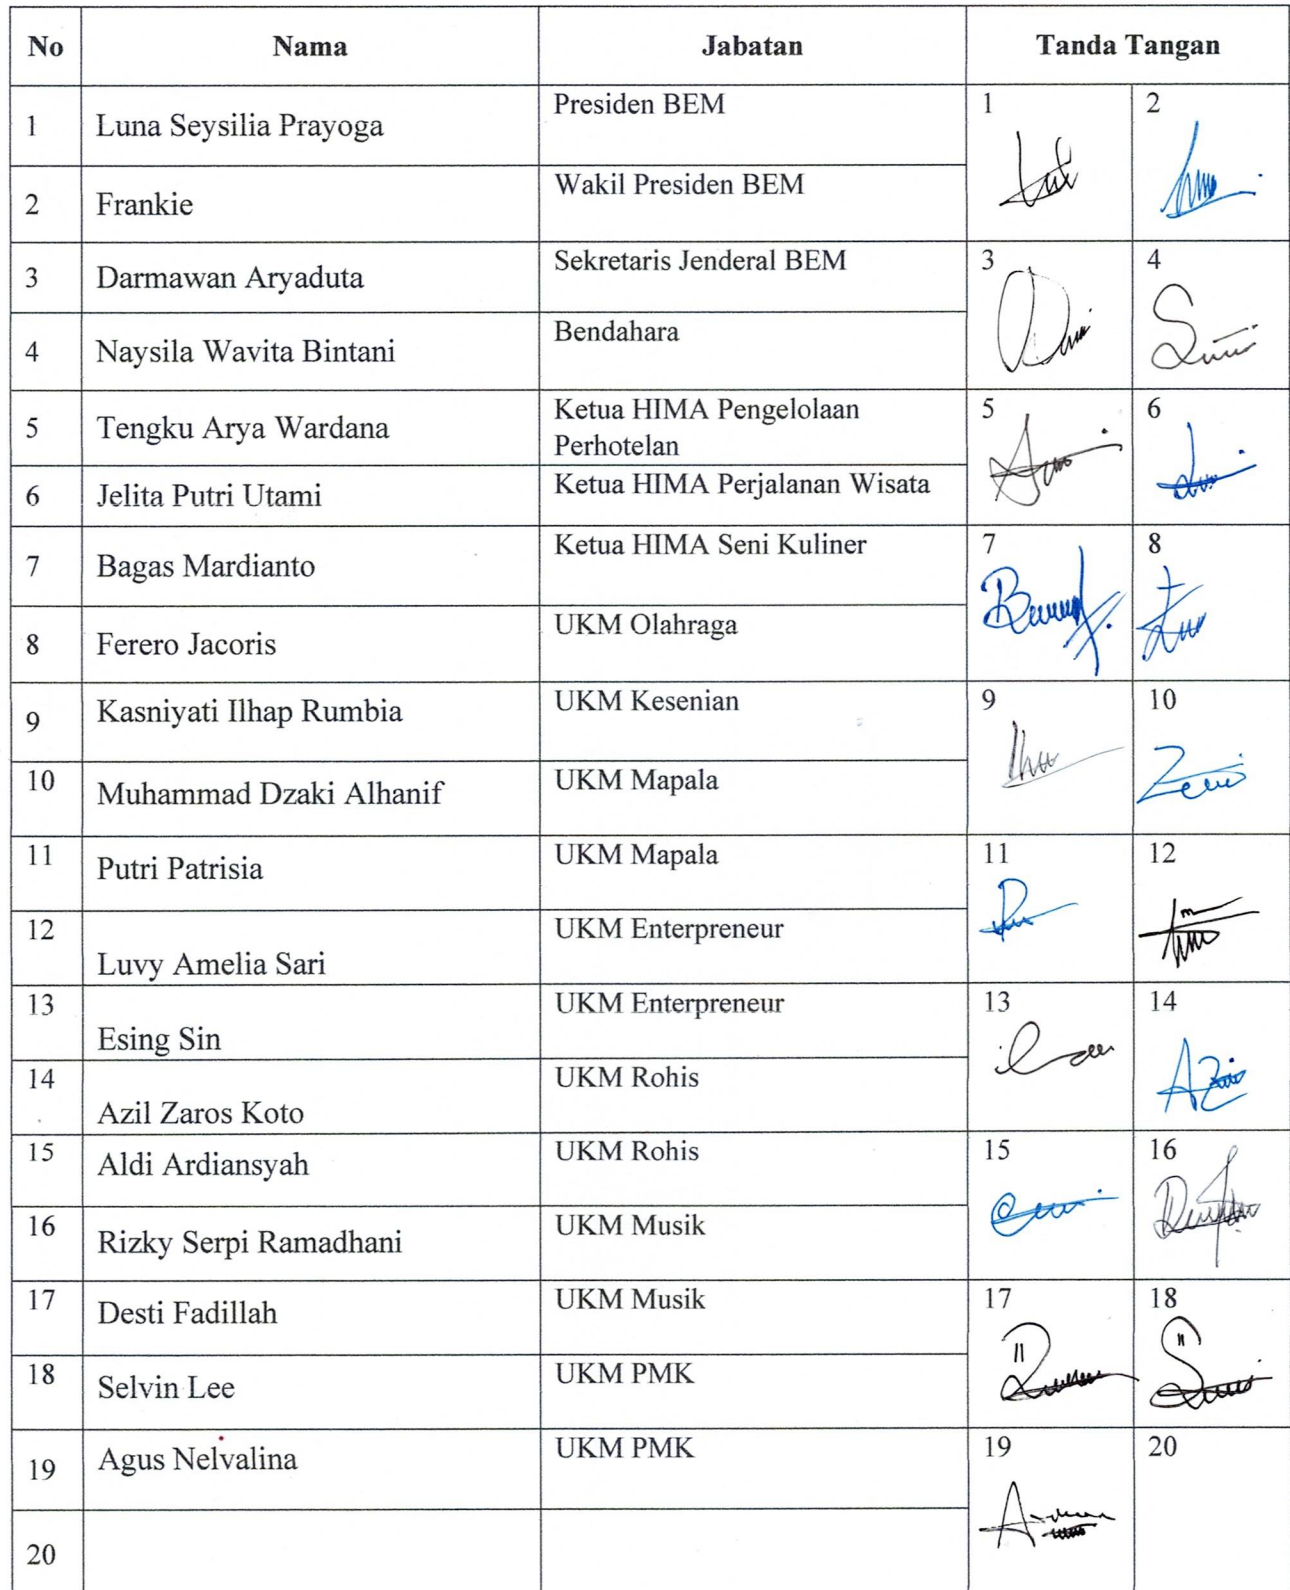 No Nama Jabatan Tanda Tangan
1 Luna Seysilia Prayoga Presiden BEM 1 2
2 Frankie Wakil Presiden BEM
3 Darmawan Aryaduta Sekretaris Jenderal BEM 3 4
4 Naysila Wavita Bintani Bendahara
5 Tengku Arya Wardana Ketua HIMA Pengelolaan 5 6
Perhotelan
6 Jelita Putri Utami Ketua HIMA Perjalanan Wisata
7 Bagas Mardianto Ketua HIMA Seni Kuliner 7 8
8 Ferero Jacoris UKM Olahraga
9 Kasniyati Ilhap Rumbia UKM Kesenian 9 10
10 Muhammad Dzaki Alhanif UKM Mapala
11 Putri Patrisia UKM Mapala 11 12
12 Luvy Amelia Sari UKM Enterpreneur
13 Esing Sin UKM Enterpreneur 13 14
14 Azil Zaros Koto UKM Rohis
15 Aldi Ardiansyah UKM Rohis 15 16
16 Rizky Serpi Ramadhani UKM Musik
17 Desti Fadillah UKM Musik 17 18
18 Selvin Lee UKM PMK
19 Agus Nelvalina UKM PMK 19 20
20